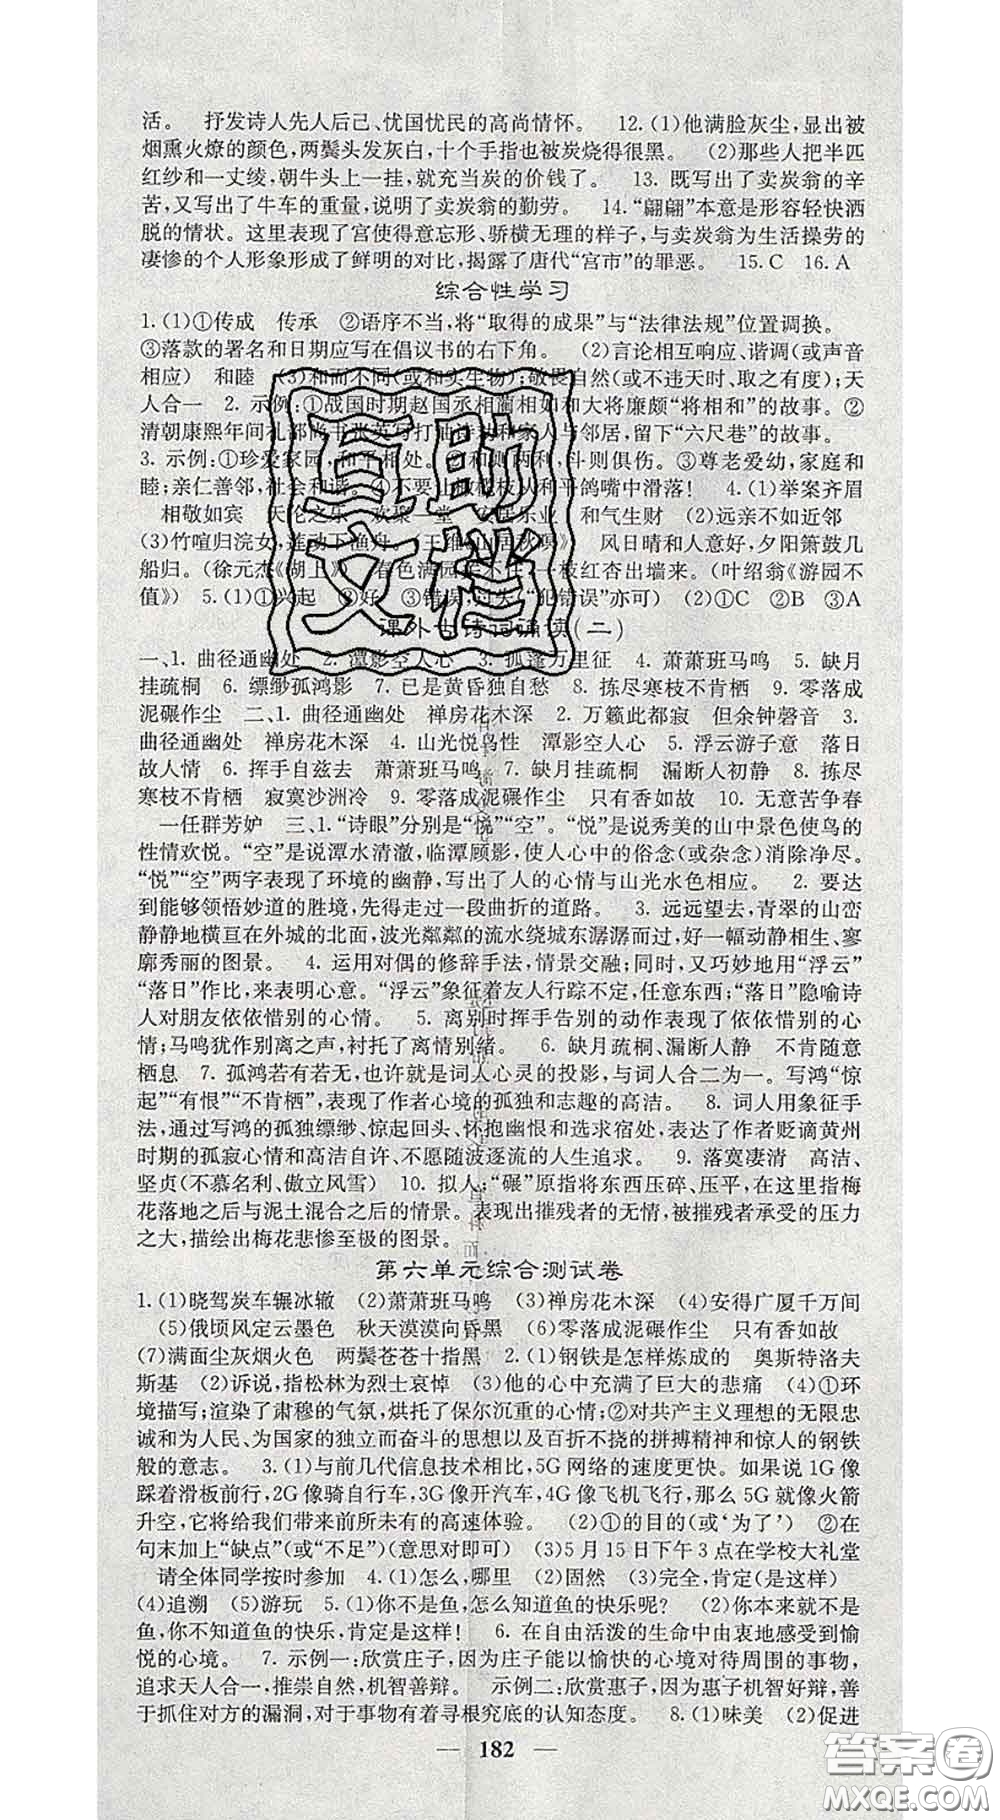 活。　抒发诗人先人后己、忧国忧民的高尚情怀。　12. (1)他满脸灰尘,显出被
烟熏火燎的颜色,两鬓头发灰白,十个手指也被炭烧得很黑。　(2)那些人把半匹
红纱和一丈绫,朝牛头上一挂,就充当炭的价钱了。　13. 既写出了卖炭翁的辛
苦,又写出了牛车的重量,说明了卖炭翁的勤劳。　14.“翩翩”本意是形容轻快洒
脱的情状。这里表现了宫使得意忘形、骄横无理的样子,与卖炭翁为生活操劳的
凄惨的个人形象形成了鲜明的对比,揭露了唐代“宫市”的罪恶。　15. C　16. A
综合性学习
1. (1)①传成　传承　②语序不当,将“取得的成果”与“法律法规”位置调换。
③落款的署名和日期应写在倡议书的右下角。　(2)言论相互响应、谐调(或声音
相应)　和睦　(3)和而不同(或和实生物);敬畏自然(或不违天时、取之有度);天
人合一　2. 示例:①战国时期赵国丞相蔺相如和大将廉颇“将相和”的故事。②
清朝康熙年间礼部尚书张英写打油诗与邻居,留下“六尺巷”的故事。
3. 示例:①珍爱家园,和平相处。②和则两利,斗则俱伤。③尊老爱幼,家庭和
睦;亲仁善邻,社会和谐。④不要让橄榄枝从和平鸽嘴中滑落!　4. (1)举案齐眉
相敬如宾　天伦之乐　欢聚一堂　安居乐业　和气生财　(2)远亲不如近邻
(3)竹喧归浣女,莲动下渔舟。(王维《山居秋暝》)　风日晴和人意好,夕阳箫鼓几
船归。(徐元杰《湖上》)　春色满园关不住,一枝红杏出墙来。(叶绍翁《游园不
值》)　5. (1)①兴起　②好　③错误,过失(“犯错误”亦可)　(2)①C　②B　③A
课外古诗词诵读(二)
一、1. 曲径通幽处　2. 潭影空人心　3. 孤蓬万里征　4. 萧萧班马鸣　5. 缺月
挂疏桐　6. 缥缈孤鸿影　7. 已是黄昏独自愁　8. 拣尽寒枝不肯栖　9. 零落成
泥碾作尘　二、1. 曲径通幽处　禅房花木深　2. 万籁此都寂　但余钟磬音　3.
曲径通幽处　禅房花木深　4. 山光悦鸟性　潭影空人心　5. 浮云游子意　落日
故人情　6. 挥手自兹去　萧萧班马鸣　7. 缺月挂疏桐　漏断人初静　8. 拣尽
寒枝不肯栖　寂寞沙洲冷　9. 零落成泥碾作尘　只有香如故　10. 无意苦争春
一任群芳妒　三、1.“诗眼”分别是“悦”“空”。“悦”是说秀美的山中景色使鸟的
性情欢悦。“空”是说潭水清澈,临潭顾影,使人心中的俗念(或杂念)消除净尽。
“悦”“空”两字表现了环境的幽静,写出了人的心情与山光水色相应。　2. 要达
到能够领悟妙道的胜境,先得走过一段曲折的道路。　3. 远远望去,青翠的山峦
静静地横亘在外城的北面,波光粼粼的流水绕城东潺潺而过,好一幅动静相生、寥
廓秀丽的图景。　4. 运用对偶的修辞手法,情景交融;同时,又巧妙地用“浮云”
“落日”作比,来表明心意。“浮云”象征着友人行踪不定,任意东西;“落日”隐喻诗
人对朋友依依惜别的心情。　5. 离别时挥手告别的动作表现了依依惜别的心
情;马鸣犹作别离之声,衬托了离情别绪。　6. 缺月疏桐、漏断人静　不肯随意
栖息　7. 孤鸿若有若无,也许就是词人心灵的投影,与词人合二为一。写鸿“惊
起”“有恨”“不肯栖”,表现了作者心境的孤独和志趣的高洁。　8. 词人用象征手
法,通过写鸿的孤独缥缈、惊起回头、怀抱幽恨和选求宿处,表达了作者贬谪黄州
时期的孤寂心情和高洁自许、不愿随波逐流的人生追求。　9. 落寞凄清　高洁、
坚贞(不慕名利、傲立风雪)　10. 拟人;“碾”原指将东西压碎、压平,在这里指梅
花落地之后与泥土混合之后的情景。表现出摧残者的无情,被摧残者承受的压力
之大,描绘出梅花悲惨至极的图景。
第六单元综合测试卷
1. (1)晓驾炭车辗冰辙　(2)萧萧班马鸣　(3)禅房花木深　(4)安得广厦千万间
(5)俄顷风定云墨色　秋天漠漠向昏黑　(6)零落成泥碾作尘　只有香如故
(7)满面尘灰烟火色　两鬓苍苍十指黑　2. (1)钢铁是怎样炼成的　奥斯特洛夫
斯基　(2)诉说,指松林为烈士哀悼　(3)他的心中充满了巨大的悲痛　(4)①环
境描写;渲染了肃穆的气氛,烘托了保尔沉重的心情;②对共产主义理想的无限忠
诚和为人民、为国家的独立而奋斗的思想以及百折不挠的拼搏精神和惊人的钢铁
般的意志。　3. (1)与前几代信息技术相比,5G网络的速度更快。如果说1G像
踩着滑板前行,2G像骑自行车,3G像开汽车,4G像飞机飞行,那么5G就像火箭
升空,它将给我们带来前所未有的高速体验。　(2)①的目的(或‘为了’)　②在
句末加上“缺点”(或“不足”)(意思对即可)　(3)5月15日下午3点在学校大礼堂
请全体同学按时参加　4. (1)怎么,哪里　(2)固然　(3)完全,肯定(是这样)
(4)追溯　(5)游玩　5. (1)你不是鱼,怎么知道鱼的快乐呢?　(2)你本来就不是
鱼,你不知道鱼的快乐,肯定是这样!　6. 在自由活泼的生命中由衷地感受到愉
悦的心境。　7. 示例一:欣赏庄子,因为庄子能以愉快的心境对待周围的事物,
追求天人合一,推崇自然,机智善辩。　示例二:欣赏惠子,因为惠子机智好辩,善
于抓住对方的漏洞,对于事物有着寻根究底的认知态度。　8. (1)味美　(2)促进
— 182 —
互助
文档
答案圈
MXQE.COM